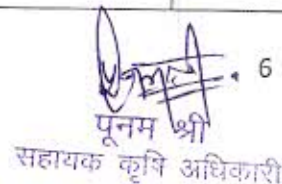 6
पूनम श्री
सहायक कृषि अधिकारी